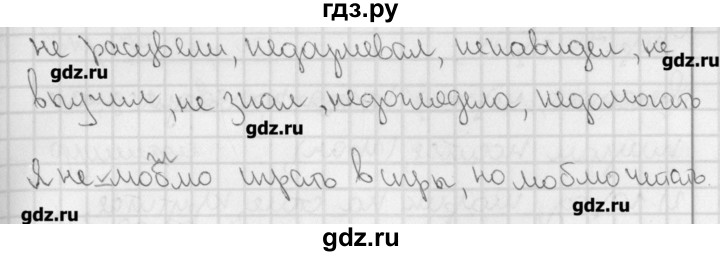 гдз.ру
не расцвели, недоумевал, ненавидел, не
gdz.ru
gdz.ru
выучил, не знал, недоглядела, недомогать
gdz.ru
Я не люблю играть в игры, но люблю читать.
gdz.ru
gdz.ru
gdz.ru